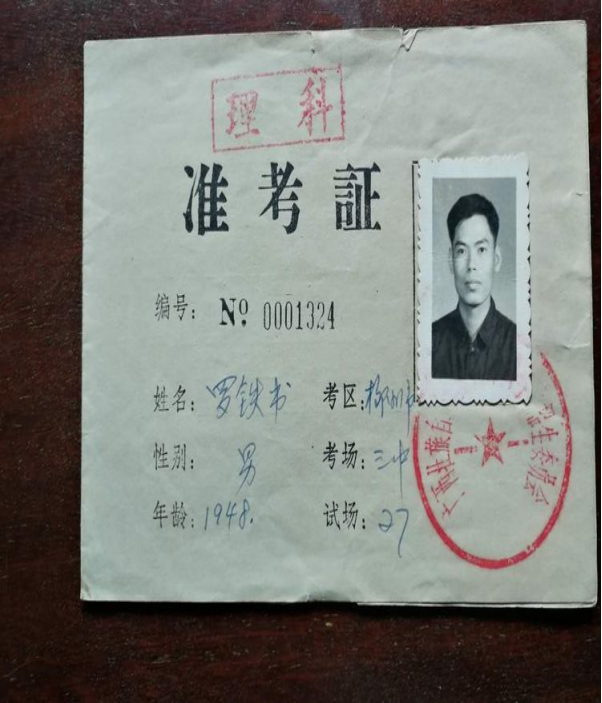 理 科
准考証
编号: № 0001324
姓名: 罗铁书 考区: 柳州市
性别: 男 考场: 三中
年龄: 1948. 试场: 27
广西壮族自
招生委员会